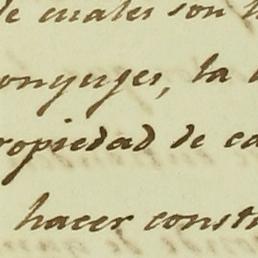 de cuales son
onyuges, la
ropiedad de ca
hacer const